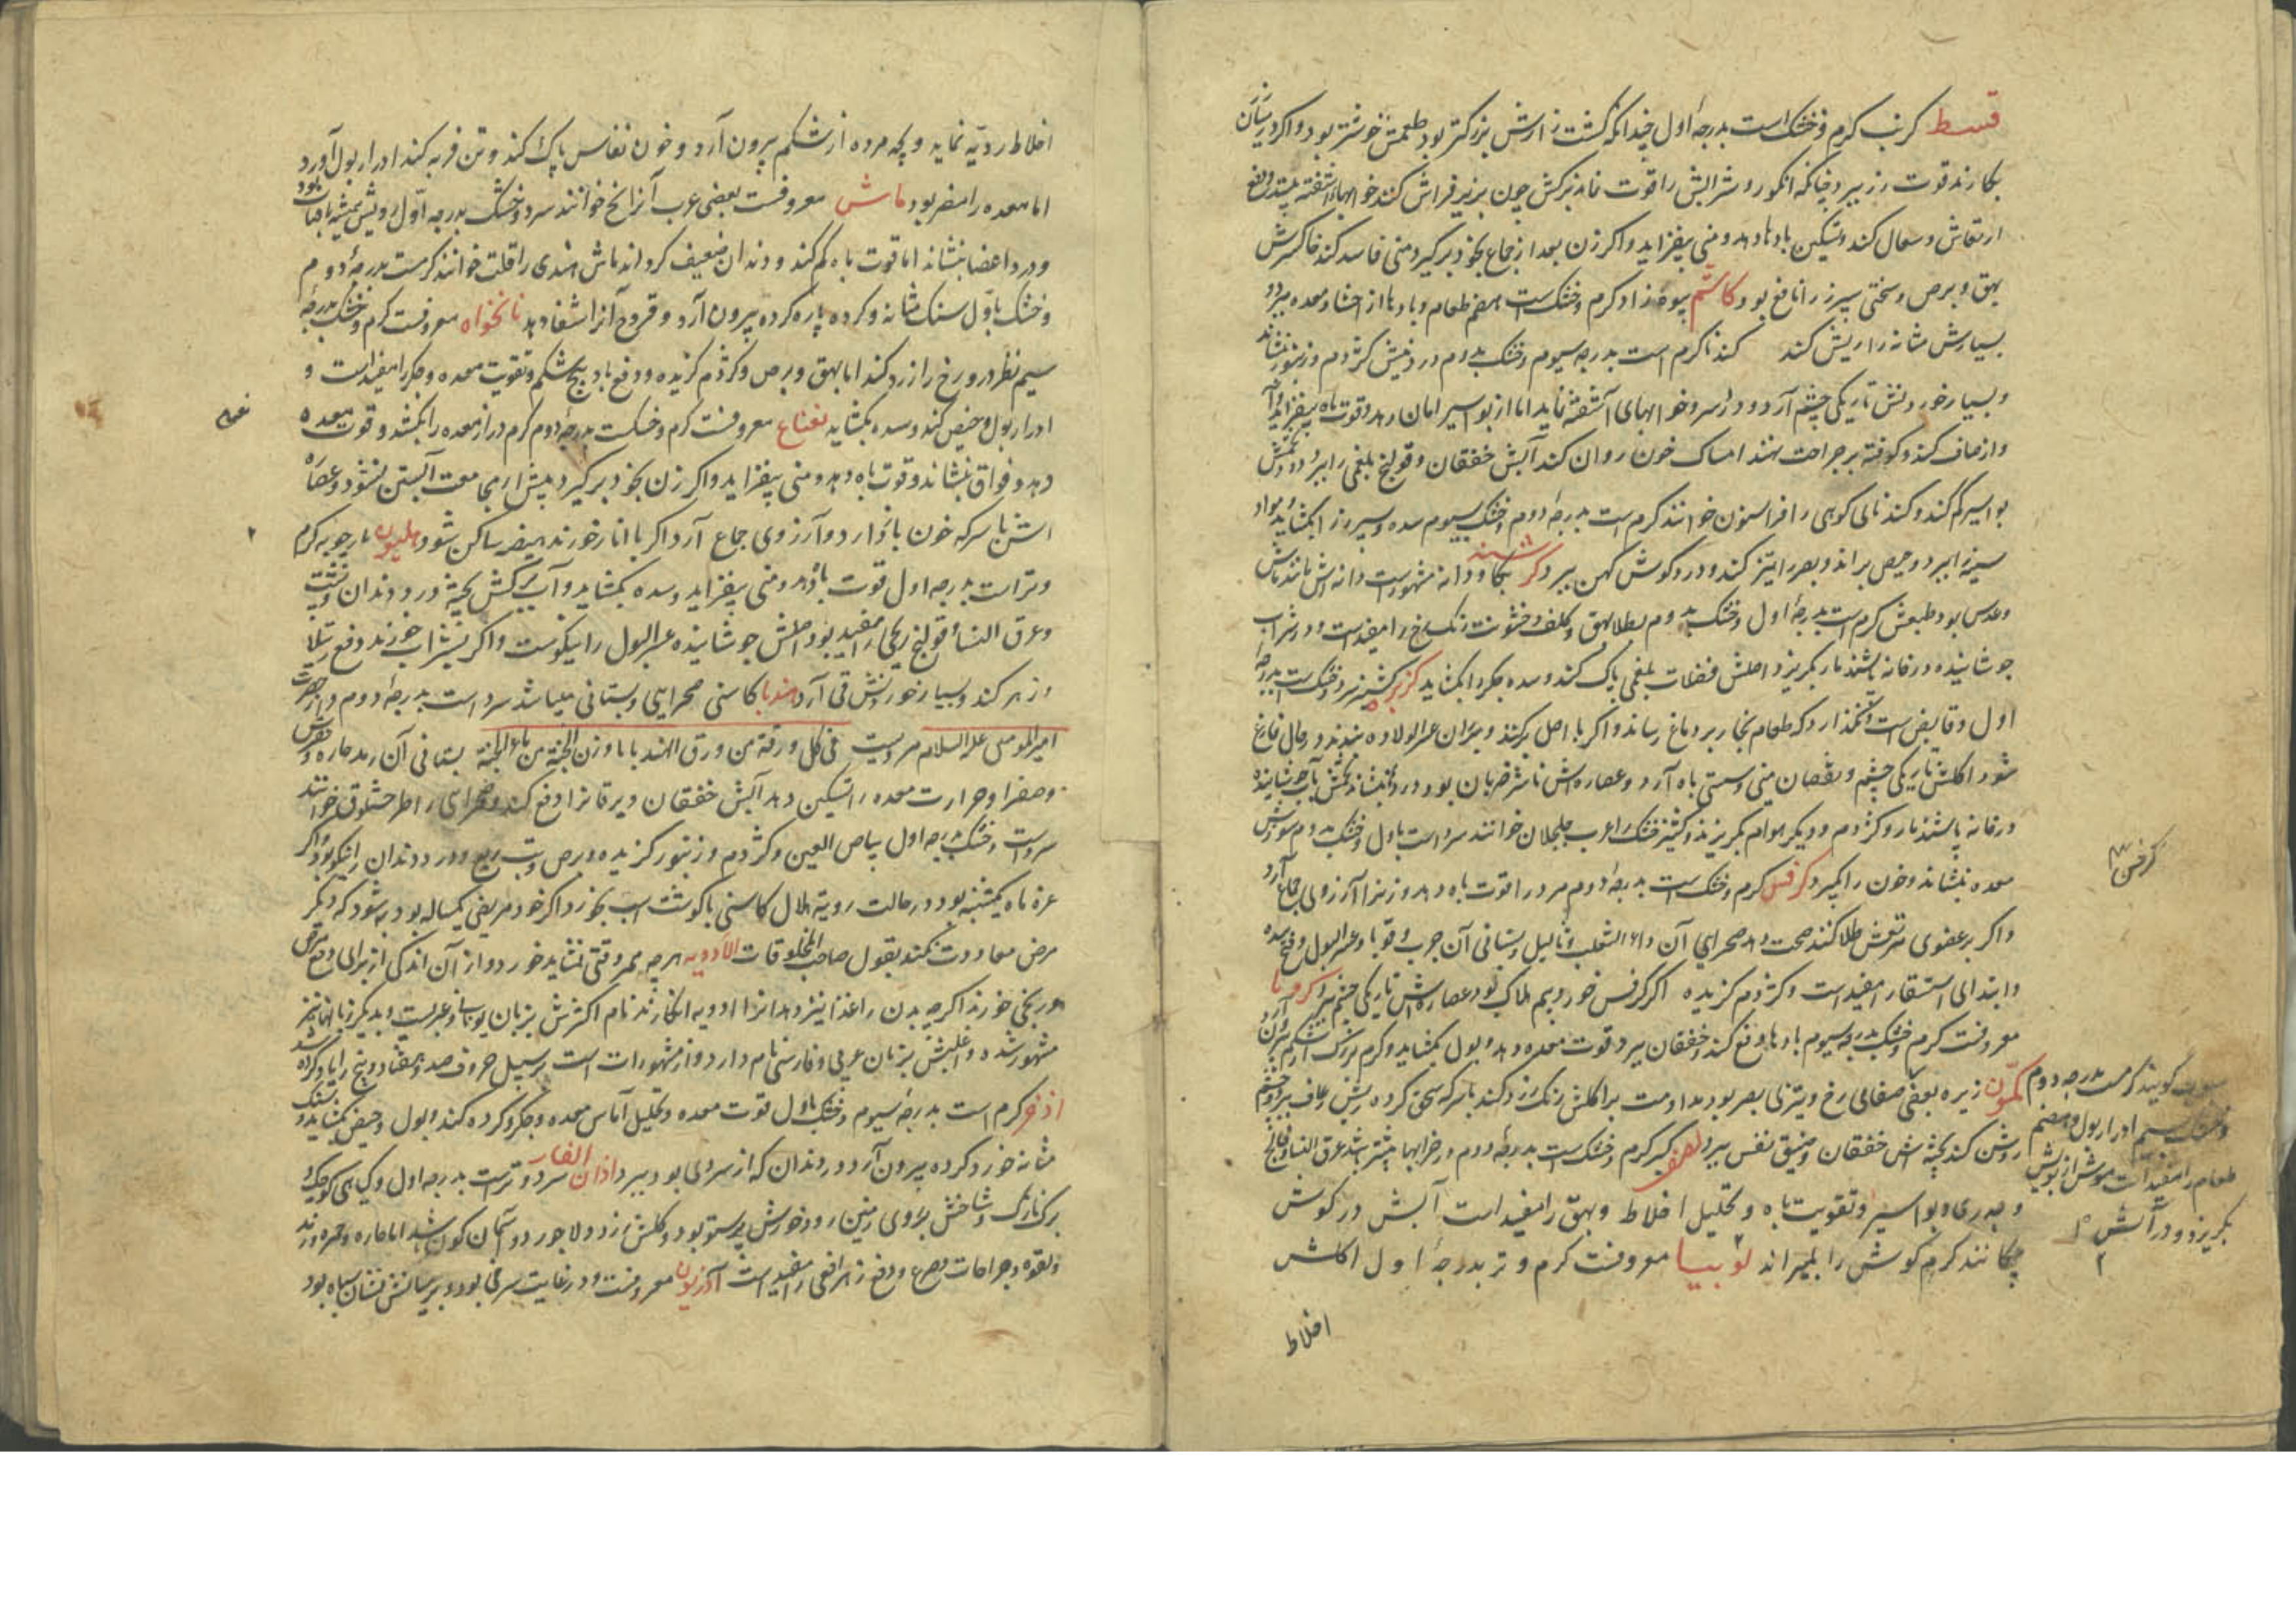 قسط کرنب کرم و خشک است بدرجهٔ اول چندانکه کشت زارش بزرکتر بود طعمش خوشتر بود و اکر در بستان رز
بکارند قوت رز ببرد چنانکه انکور و شرابش را قوت نماند برکش چون بزیر فراش کنند خوابهاء آشفته ببیند و دفع
ارتعاش و سعال کند و تسکین بادها دهد و منی بیفزاید و اکر زن بعد از جماع بخود بر کیرد منی فاسد کند خاکسترش
بهق و برص و سختی سپرز را نافع بود کاشم کرم و خشک است هضم طعام و بادها از احشا و معده ببرد و
بسیارش مثانه را ریش کند کندنا کرم است بدرجه سیوم و خشک بدوم درد نیش کژدم و زنبور بنشاند
و بسیار خوردنش تاریکی چشم آرد و درد سر و خوابهای آشفته نماید اما از بواسیر امان دهد و قوت باه بیفزاید و آ
واز صاف کند و کوفته بر جراحت نهند امساک خون روان کند آبش خفقان و قولنج بلغمی را ببرد و دود تخمش
بواسیر کم کند و کندنای کوهی را فراسیون خوانند کرم است بدرجهٔ دوم و خشک بسیوم سده و سپرز را بکشاید و مواد
سینه را ببرد و حیض براند و بصر را تیز کند و درد کوش کهن ببرد کرسنه کاودانه مشهور است دانه اش مانند ماش
و عدس بود طبعش کرم است بدرجهٔ اول و خشک بدوم بطلا بهق و کلف و خشونت رنک رخ را مفید است و در شراب
جوشانیده در خانه پاشند مار بکریزد اصلش فضلات بلغمی پاک کند و سده جکر را بکشاید کزبره کشنیز سرد و خشک است بدرجه
اول و قابض است و نکذارد که طعام بخار بر دماغ رساند و اکر با اصل برکنند و بر ران عسر الولاده بندند در حال فارغ
شود اکلش تاریکی چشم و نقصان منی و سستی باه آرد و عصاره اش ضربان بود درد بنشاند تخمش بآب جوشانیده
در خانه پاشند مار و کژدم و دیکر هوام بکریزند و کشنیز خشک را عرب جلجلان خوانند سرد است باول و خشک بدوم سوزش
معده بنشاند و خون را کم کند کرفس کرم و خشک است بدرجهٔ دوم مرد را قوت باه دهد و زنرا آرزوی جماع آرد
و اکر بر عضوی مرتعش طلا کنند صحت دهد صحرایی آن داء الثعلب و ثالیل و بستانی آن جرب و قوبا و عسر البول و فتح سده
و ابتدای استسقا را مفید است و کژدم کزیده اکر کرفس خورد بیم هلاک بود عصاره اش تاریکی چشم ببرد کرویا
معروفست کرم و خشک بدرجه سیوم بادها دفع کند و خفقان ببرد قوت معده دهد و بول بکشاید و کرم بزرک از شکم بیرون آرد
کمون زیره بعضی صفایی رخ و تیزی بصر بود مداومت بر اکلش رنک زرد کند با سرکه سحق کرده رعاف ببرد و چشم
روشن کند خفقان و ضیق نفس ببرد لصف کبر کرم و خشک است بدرجهٔ دوم و در خرابها بیشتر باشد عرق النسا و فالج
و بواسیر و تقویت باه و تحلیل اخلاط و بهق را مفید است آبش در کوش
چکانند کرم کوش را بمیراند لوبیا معروفست کرم و تر بدرجهٔ اول اکلش
کرفس
کویند کرمست بدرجه دوم
و خشک بسیم ادرار بول و هضم
طعام را مفید است موش از بویش
بکریزد و در آتش
اخلاط
اخلاط ردیّه نماید و بچه مرده از شکم بیرون آرد و خون نفاس پاک کند و تن فربه کند ادرار بول آورد
اما معده را مضر بود ماش معروفست بعضی عرب آنرا مج خوانند سرد و خشک بدرجه اوّل
و درد اعضا بنشاند اما قوت باه کم کند و دندان ضعیف کرداند ماش هندی را قلت خوانند کرمست بدرجهٔ دوم
و خشک باوّل سنک مثانه و کرده پاره کرده بیرون آرد و قروح آنرا شفا دهد نانخواه معروفست کرم و خشک بدرجهٔ
سیم نظر در و رخ را زرد کند اما بهق و برص و کژدم کزیده و دفع باد پیچ شکم و تقویت معده و جکر را مفید است و
ادرار بول و حیض کند و سده بکشاید نعناع معروفست کرم و خشکست بدرجهٔ دوم کرم دراز معده را بکشد و قوت معده
دهد و فواق بنشاند و قوت باه دهد و منی بیفزاید و اکر زن بخود بر کیرد پیش از مجامعت آبستن نشود و عصاره
اش با سرکه خون باز دارد و آرزوی جماع آرد اکر با انار خورند هیضه ساکن شود هلیون مارچوبه کرم
و تر است بدرجه اول قوت باه دهد و منی بیفزاید و سده بکشاید و آب برکش پخته درد دندان و پشت
و عرق النسا و قولنج ریحی را مفید بود اصلش جوشانیده عسر البول را نیکوست و اکر بشراب خورند دفع رتیلا
و زهر کند و بسیار خوردنش قی آرد هندبا کاسنی صحرایی و بستانی میباشد سرد است بدرجهٔ دوم و از حضرت
امیر المومنین علیه السلام مرویست فی کل ورقة من ورق الهندبا ما وزن الجنة من ماء الجنة بستانی آن رمد حاره و نقرس
و صفرا و حرارت معده را تسکین دهد آبش خفقان و یرقانرا دفع کند و صحرایی را طرخشقوق خوانند
سرد است و خشک بدرجه اول بیاض العین و کژدم و زنبور کزیده و برص و تب ربع و درد دندان را نیکو بود و اکر
غره ماه یکشنبه بود در حالت رویة هلال کاسنی با کوشت اسب بخورد اکر خود مریض یکساله بود به شود که دیکر
مرض معاودت نکند بقول صاحب المخلوقات الادویه هرچه بهر وقتی نشاید خورد و از آن اندکی از برای دفع مرض
و رنجی خورند اکرچه بدن را غذا نیز دهد انرا ادویه انکارند نام اکثرش بزبان یونانی و عربیست و بدیکر زبانها نیز
مشهور شده و اغلبش بزبان عربی و فارسی نام دارد و از مشهورات است بر سبیل حروف صد و هفتاد و پنج را یاد کرده شد
اذخر کرم است بدرجهٔ سیوم و خشک باول قوت معده و تحلیل آماس معده و جکر و کرده کند و بول و حیض بکشاید و سنک
مثانه خورد کرده بیرون آرد و درد دندان که از سردی بود ببرد اذان الفار سرد و تر است بدرجه اول و کیاهی کوچک و
برک نازک و شاخش بروی زمین رود خورش پرستو بود و کلش زرد و لاجورد و آسمان کون باشد اما حاره و حمره و رمد
و لقوه و جراحات و صرع و دفع زهر افعی را مفید است آذریون معروفست و در غایت سرخی بود و بر میانش نشان سیاه بود
نعناع